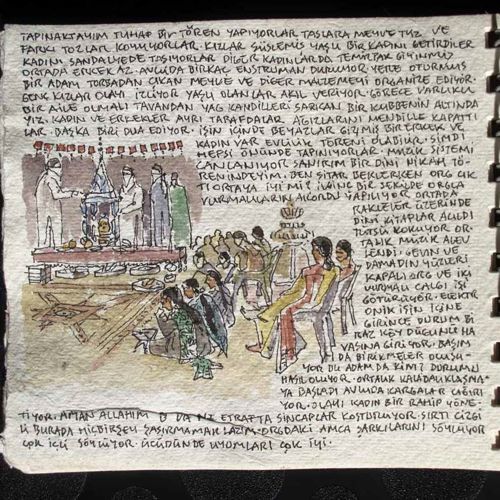 TAPINAKTAYIM TUHAF BİR TÖREN YAPIYORLAR TASLARA MEYVE TUZ VE
FARKI TOZLAR KOYUYORLAR. KIZLAR SÜSLEMİS YAŞLI BİR KADINI GETİRDİLER
KADINI SANDALYEDE TAŞIYORLAR DİĞER KADINLARDA TEMİZPAK GİYİNMİŞ
ORTADA ERKEK AZ. AVLUDA BİRKAÇ ENSTRUMAN DURUYOR YERE OTURMUŞ
BİR ADAM TORBADAN ÇIKAN MEYVE VE DİĞER MALZEMEYİ ORGANİZE EDİYOR.
GENÇ KIZLAR OLAYI İZLİYOR YAŞLI OLANLAR AKIL VERİYOR. GÖRECE VARLIKLI
BİR AİLE OLMALI TAVANDAN YAĞ KANDİLLERİ SARKAN BİR KUBBENİN ALTINDA
YIZ. KADIN VE ERKEKLER AYRI TARAFDALAR AĞIZLARINI MENDİLLE KAPATTI
LAR. BAŞKA BİRİ DUA EDİYOR. İŞİN İÇİNDE BEYAZLAR GİYMİŞ BİR ERKEK VE
KADIN VAR EVLİLİK TÖRENİ OLABİLİR. ŞİMDİ
HEPSİ ÖNÜNDE TAPINIYORLAR. MÜZİK SİSTEMİ
CANLANIYOR SANIRIM BİR DİNİ NİKAH TÖ
RENİNDEYİM. BEN SİTAR BEKLERKEN ORG ÇIK
TI ORTAYA İYİ Mİ? İLGİNÇ BİR ŞEKİLDE ORGLA
VURMALILARIN AKORDU YAPILIYOR ORTADA
RAHLELER ÜZERİNDE
DİNİ KİTAPLAR AÇILDI
TÜTSÜ KOKUYOR OR
TALIK MÜZİK ALEV
LENDİ. GELİN VE
DAMADIN YÜZLERİ
KAPALI ORG VE İKİ
VURMALI ÇALGI İŞİ
GÖTÜRÜYOR. ELEKTR
ONİK İŞİN İÇİNE
GİRİNCE DURUM Bİ
RAZ KÖY DÜĞÜNÜ HA
VASINA GİRİYOR. BAŞIM
DA BİRİKMELER OLUŞU
YOR BU ADAM DA KİM? DURUMU
HASIL OLUYOR. ORTALIK KALABALIKLAŞMA
YA BAŞLADI AVLUDA KARGALAR ÇIĞIRI
YOR. OLAYI KADIN BİR RAHİP YÖNE-
TİYOR. AMAN ALLAHIM O DA NE ETRAFTA SİNCAPLAR KOŞTURUYOR. SIRTI ÇİZGİ
Lİ BURADA HİÇBİRŞEYİ ŞAŞIRMAMAK LAZIM. ORGDAKİ AMCA ŞARKILARINI SÖYLÜYOR
ÇOK İÇLİ SÖYLÜYOR. ÜÇÜNÜN UYUMLARI ÇOK İYİ.